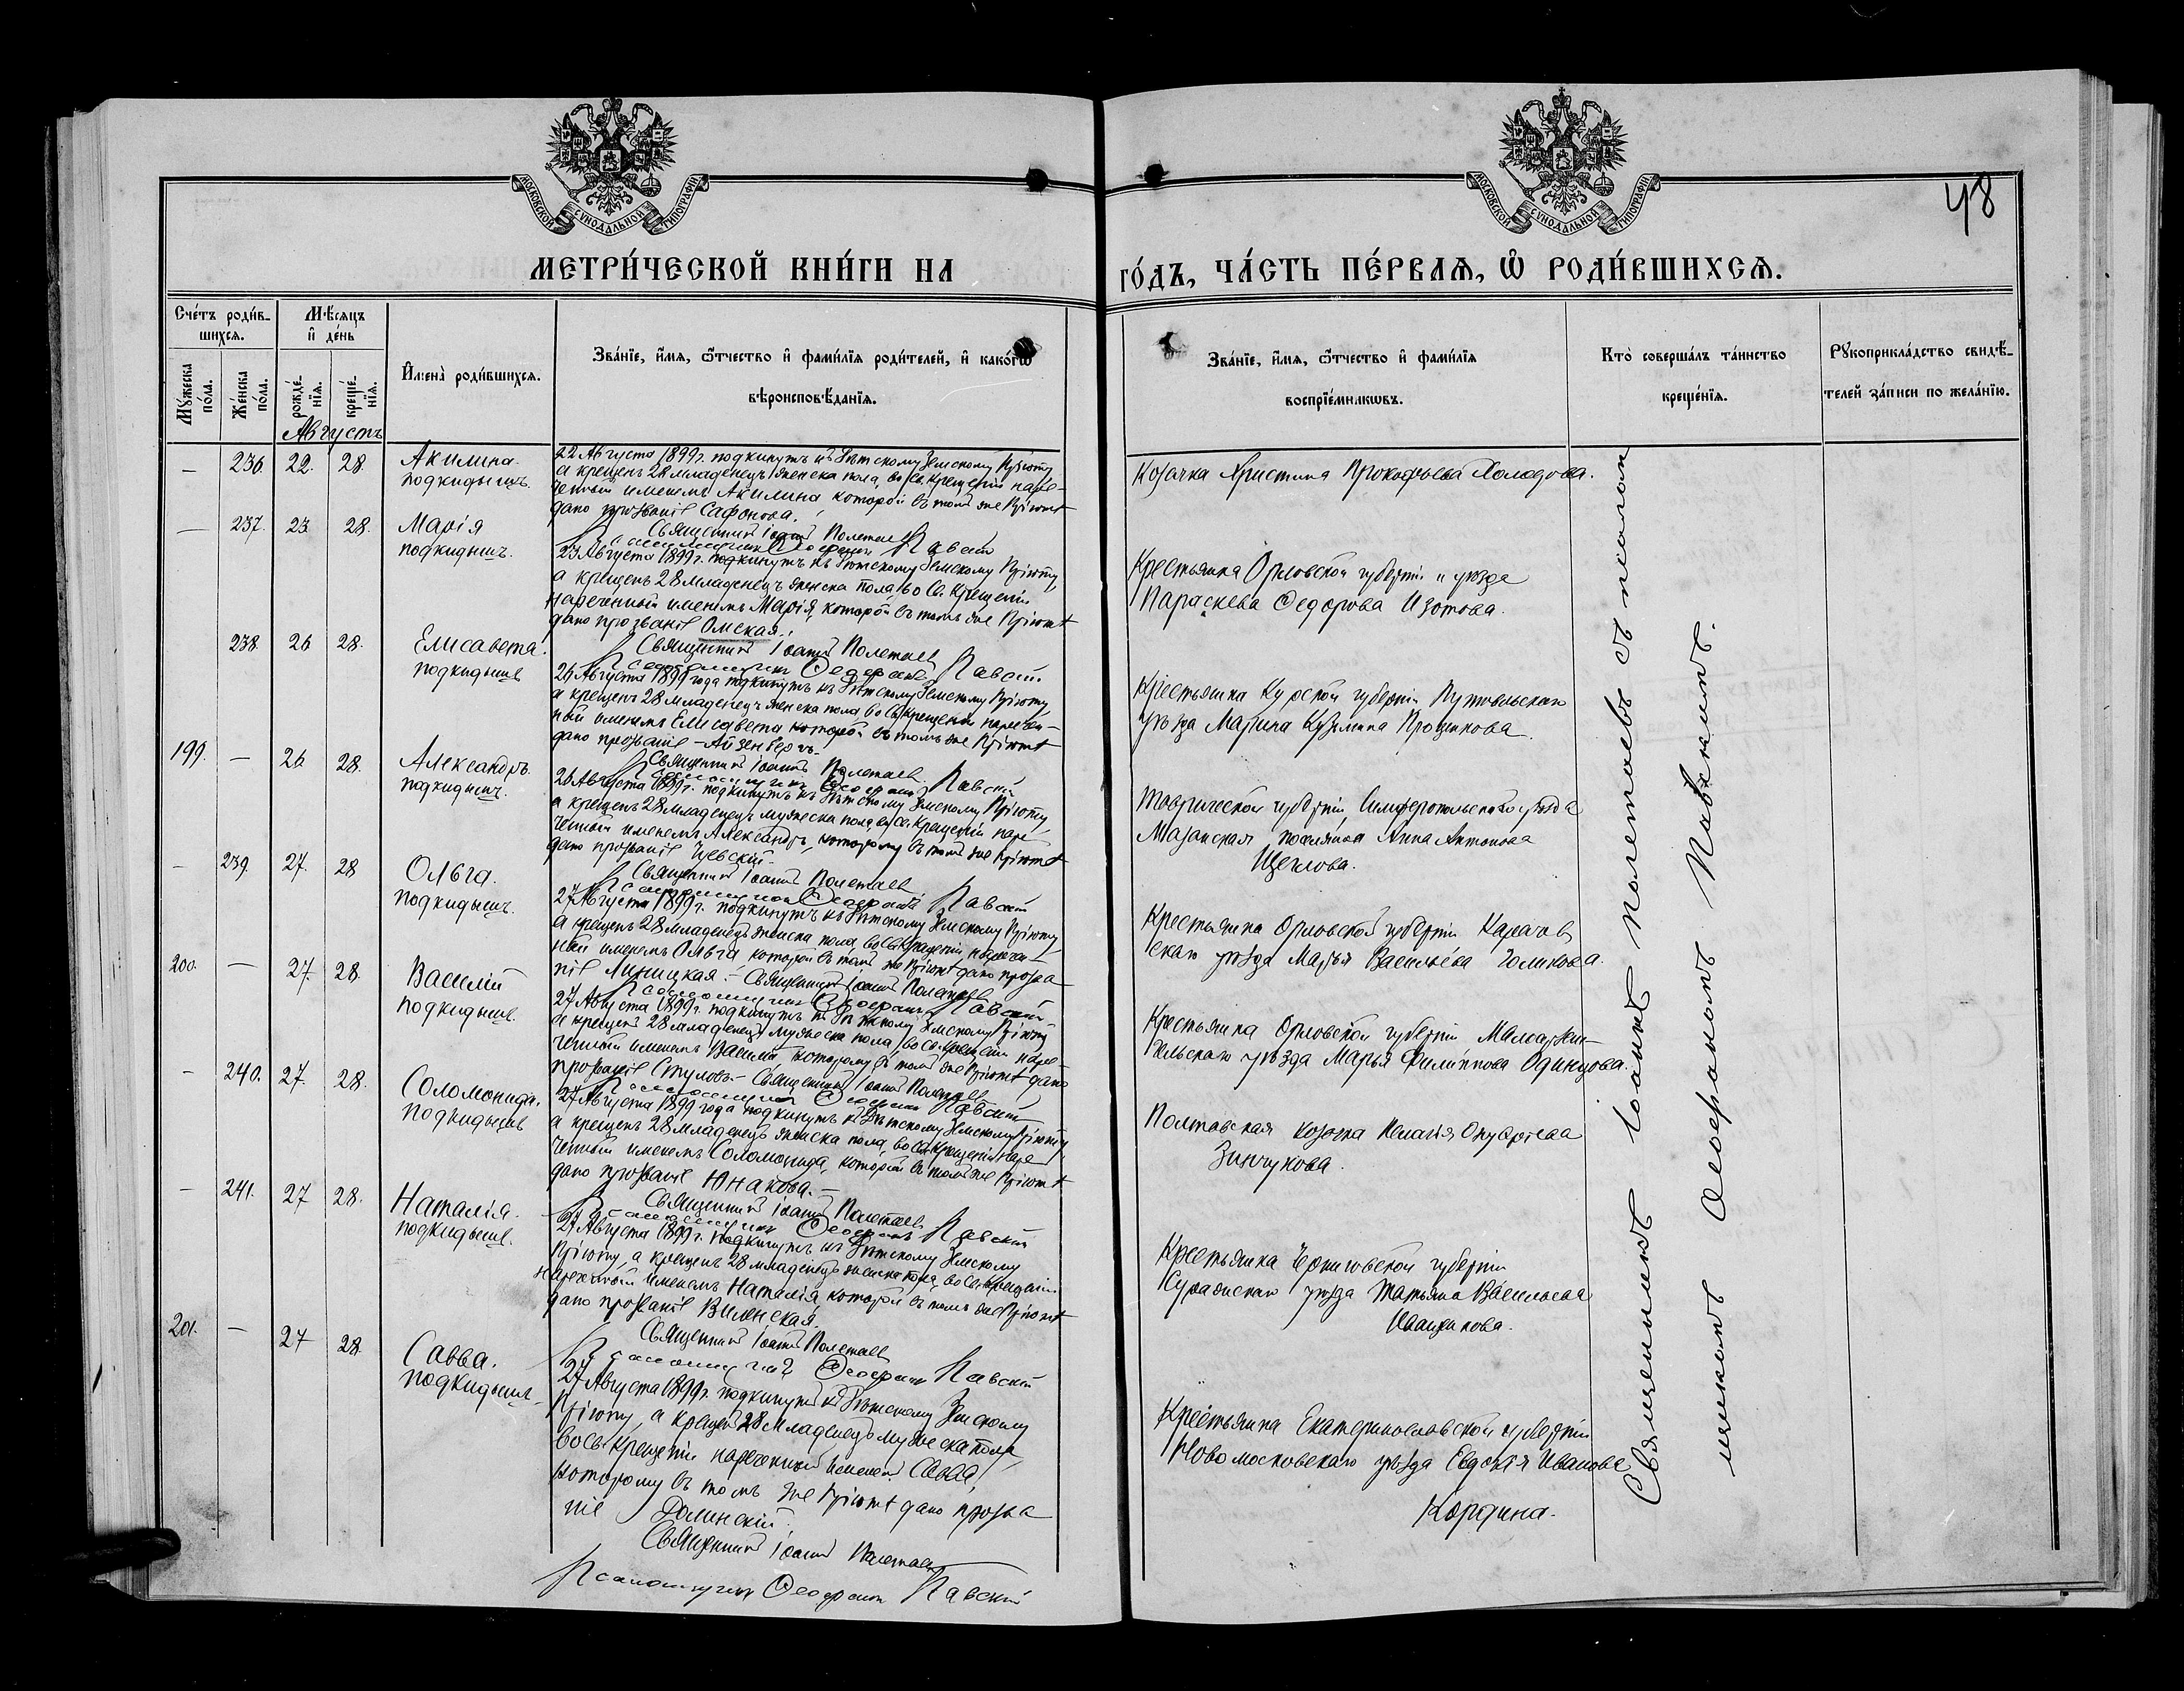 МОСКОВСКОЙ СѴНОДАЛЬНОЙ ТИПОГРАФІИ
МОСКОВСКОЙ СѴНОДАЛЬНОЙ ТИПОГРАФІИ
48
МЕТРИ́ЧЕСКОЙ КНИ́ГИ НА
ГО́ДЪ, ЧА́СТЬ ПЕ́РВАѦ, Ѡ҆ РОДИ́ВШИХСѦ.
Сче́тъ роди́в-
шихсѧ.
Му́жеска по́ла.
Же́нска по́ла.
Мѣ́сѧцъ
и҆ де́нь
рожде́-
нїѧ.
креще́-
нїѧ.
Августъ
И҆мена̀ роди́вшихсѧ.
Зва́нїе, и҆́мѧ, ѻ҆́тчество и҆ фами́лїѧ роди́телей, и҆ како́гѡ
вѣроисповѣ́данїѧ.
Зва́нїе, и҆́мѧ, ѻ҆́тчество и҆ фами́лїѧ
воспрїе́мникѡвъ.
Кто̀ соверша́лъ та́инство
креще́нїѧ.
Рꙋкоприкла́дство свидѣ́-
телей за́писи по жела́нїю.
— 236. 22. 28.
Акилина.
подкидышъ.
22 Августа 1899 г. подкинутъ къ Дѣтскому Земскому Пріюту
а крещенъ 28 младенецъ женска пола, во Св. Крещеніи наре-
ченный именемъ Акилина которой въ томъ же Пріютѣ
дано прозваніе Сафонова.
Священникъ Іоаннъ Полетаевъ
Псаломщикъ Ѳеофанъ Павскій
Козачка Христина Прокофьева Холодова.
— 237. 23. 28.
Марія
подкидышъ.
23 Августа 1899 г. подкинутъ къ Дѣтскому Земскому Пріюту,
а крещенъ 28 младенецъ женска пола, во Св. Крещеніи
нареченный именемъ Марія, которой въ томъ же Пріютѣ
дано прозваніе Омская.
Священникъ Іоаннъ Полетаевъ
Псаломщикъ Ѳеофанъ Павскій
Крестьянка Орловской губерніи и уѣзда
Параскева Ѳедорова Изотова.
238. 26 28.
Елисавета.
подкидышъ
26 Августа 1899 года подкинутъ къ Дѣтскому Земскому Пріюту,
а крещенъ 28 младенецъ женска пола во Св. Крещеніи наречен-
ный именемъ Елисавета которой въ томъ же Пріютѣ
дано прозваніе – Айзенбергъ.
Священникъ Іоаннъ Полетаевъ
Псаломщикъ Ѳеофанъ Павскій
Крестьянка Курской губерніи Путивльскаго
уѣзда Марина Кузьмина Прошкова.
199. — 26. 28.
Александръ.
подкидышъ.
26 Августа 1899 г. подкинутъ къ Дѣтскому Земскому Пріюту,
а крещенъ 28 младенецъ мужеска пола, во Св. Крещеніи наре-
ченный именемъ Александръ, которому въ томъ же Пріютѣ
дано прозваніе
Священникъ Іоаннъ Полетаевъ
Псаломщикъ Ѳеофанъ Павскій
Таврической губерніи, Симферопольскаго уѣзда
Мазанская поселянка Анна Антонова
Щеглова.
— 239. 27. 28
Ольга.
подкидышъ.
27 Августа 1899 г. подкинутъ къ Дѣтскому Земскому Пріюту
а крещенъ 28 младенецъ женска пола во Св. Крещеніи наречен-
ный именемъ Ольга которой въ томъ же Пріютѣ дано прозва
ніе Линицкая. – Священникъ Іоаннъ Полетаевъ
Псаломщикъ Ѳеофанъ Павскій
Крестьянка Орловской губерніи Карачев
скаго уѣзда Марья Васильева Голикова.
200. — 27. 28.
Василій
подкидышъ.
27 Августа 1899 г. подкинутъ къ Дѣтскому Земскому Пріюту
а крещенъ 28 младенецъ мужеска пола, во Св. Крещеніи наре-
ченный именемъ Василій которому въ томъ же Пріютѣ дано
прозваніе Стуловъ. – Священникъ Іоаннъ Полетаевъ
Псаломщикъ Ѳеофанъ Павскій
Крестьянка Орловской губерніи Малоархан-
гельскаго уѣзда Марья Филиппова Одинцова.
— 240. 27. 28.
Соломонида.
подкидышъ
27 Августа 1899 года подкинутъ къ Дѣтскому Земскому Пріюту,
а крещенъ 28 младенецъ женска пола, во Св. Крещеніи наре
ченный именемъ Соломонида, которой въ томъ же Пріютѣ
дано прозваніе Юнакова. –
Священникъ Іоаннъ Полетаевъ
Псаломщикъ Ѳеофанъ Павскій
Полтавская козачка Пелагія Онуфріева
Зинчукова.
— 241. 27 28.
Наталія.
подкидышъ.
27 Августа 1899 г. подкинутъ къ Дѣтскому Земскому
Пріюту, а крещенъ 28 младенецъ женска пола, во Св. Крещеніи
нареченный именемъ Наталія, которой въ томъ же Пріютѣ
дано прозваніе Виленская.
Священникъ Іоаннъ Полетаевъ
Псаломщикъ Ѳеофанъ Павскій
Крестьянка Черниговской губерніи
Суражскаго уѣзда Татьяна Васильева
Иващикова.
201. — 27 28.
Савва.
подкидышъ.
27 Августа 1899 г. подкинутъ къ Дѣтскому Земскому
Пріюту, а крещенъ 28 младенецъ мужеска пола,
во Св. Крещеніи нареченный именемъ Савва,
которому въ томъ же Пріютѣ дано прозва
ніе Долинскій.
Священникъ Іоаннъ Полетаевъ
Псаломщикъ Ѳеофанъ Павскій
Крестьянка Екатеринославской губерніи
Новомосковскаго уѣзда Евдокія Иванова
Корфина.
Священникъ Іоаннъ Полетаевъ съ псалом
щикомъ Ѳеофаномъ Павскимъ.